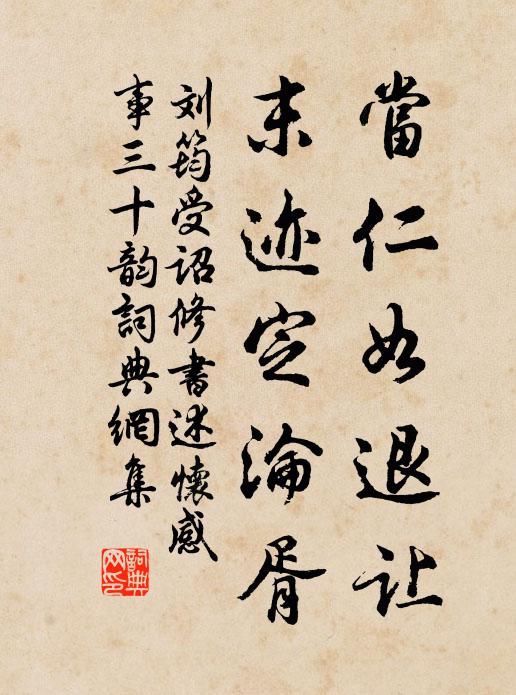 當仁如退让
末迹定淪胥
刘筠受诏修書述懷感
事三十韵詞典網集
詞典网印